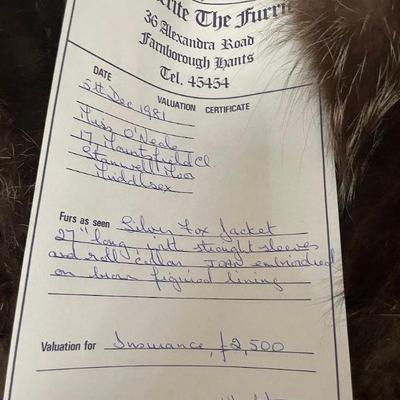 The Furrier
36 Alexandra Road
Farnborough Hants
Tel. 45454
DATE
VALUATION CERTIFICATE
5th Dec 1981
Miss O'Neale
17 Hountsfield Cl.
Stanwell Moor
Middlesex
Furs as seen Silver Fox Jacket
27" long, with straight sleeves
and roll collar JOAN embroidered
on brown figured lining
Valuation for Insurance, £2,500